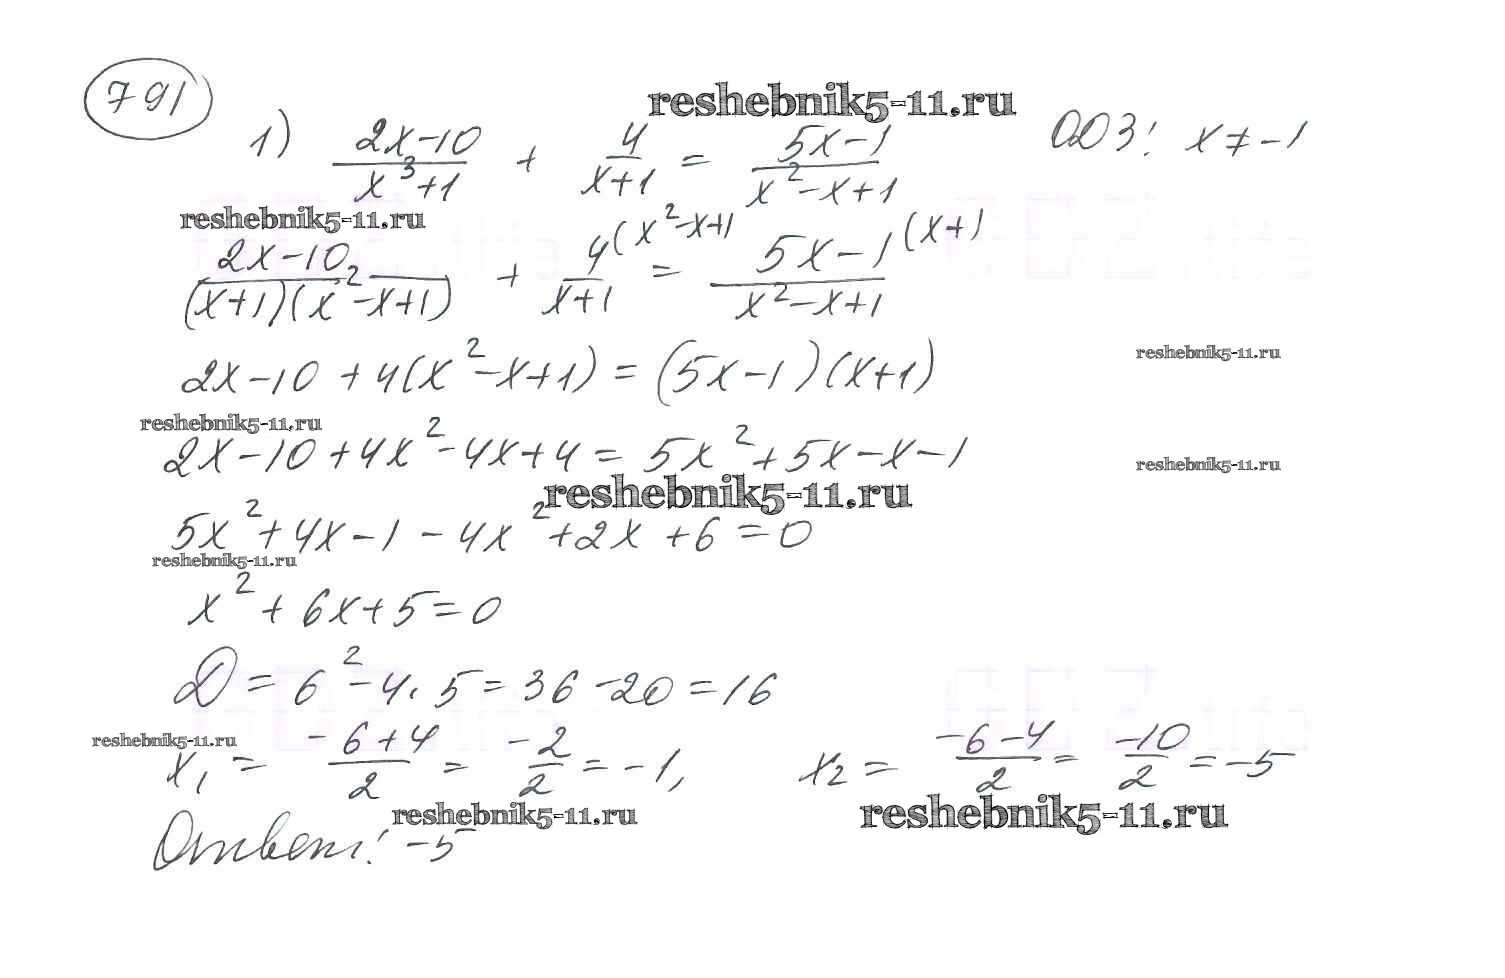 791
reshebnik5-11.ru
1) (2x-10)/(x³+1) + 4/(x+1) = (5x-1)/(x²-x+1) ОДЗ: x≠-1
reshebnik5-11.ru
(2x-10)/((x+1)(x²-x+1)) + 4(x²-x+1)/(x+1) = 5x-1(x+1)/(x²-x+1)
2x-10+4(x²-x+1)=(5x-1)(x+1)
reshebnik5-11.ru
reshebnik5-11.ru
2x-10+4x²-4x+4=5x²+5x-x-1
reshebnik5-11.ru
reshebnik5-11.ru
5x²+4x-1-4x²+2x+6=0
reshebnik5-11.ru
x²+6x+5=0
D=6²-4·5=36-20=16
reshebnik5-11.ru
x₁=(-6+4)/2=-2/2=-1, x₂=(-6-4)/2=-10/2=-5
reshebnik5-11.ru
reshebnik5-11.ru
Ответ: -5